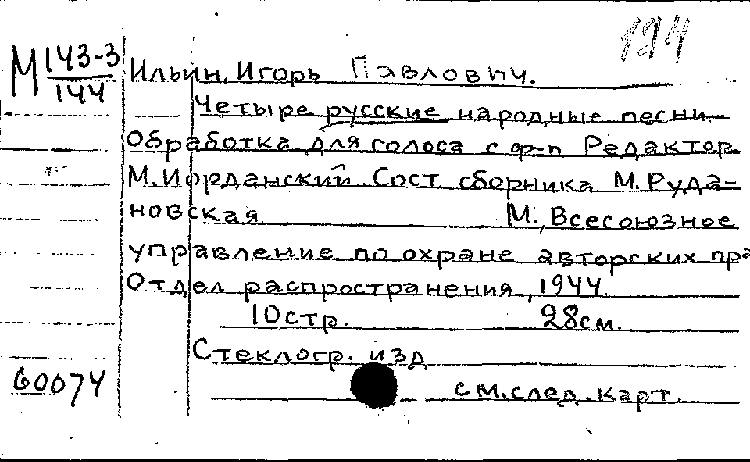 194
М 143-3
144
Ильин, Игорь Павлович.
Четыре русские народные песни.
Обработка для голоса с ф-п Редактор
М. Иорданский Сост сборника М. Руда-
новская М., Всесоюзное
управление по охране авторских пра
Отдел распространения, 1944
10 стр. 28 см.
Стеклогр. изд
60074
см. след. карт.